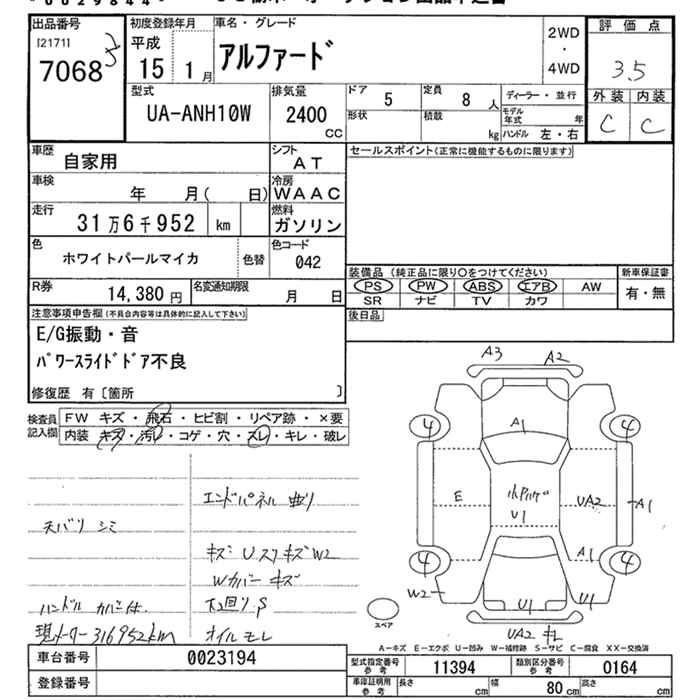 出品番号
[2171]
7068
初度登録年月
平成
15 1 月
車名・グレード
アルファード
2WD
・
4WD
評価点
3.5
外装 内装
C C
型式
UA-ANH10W
排気量
2400
cc
ドア
5
定員
8 人
形状
積載
kg
ディーラー・並行
モデル年式 年
ハンドル 左・右
車歴
自家用
シフト
AT
車検
年 月( 日)
冷房
WAAC
走行
31万6千952 km
燃料
ガソリン
色
ホワイトパールマイカ
色替
色コード
042
R券
14,380 円
名変通知期限
月 日
セールスポイント(正常に機能するものに限ります)
装備品 (純正品に限り○をつけてください)
PS PW ABS エアB AW
SR ナビ TV カワ
新車保証書
有・無
後日品
注意事項申告欄(不具合内容等は具体的に記入して下さい)
E/G振動・音
パワースライドドア不良
修復歴 有〔箇所 〕
検査員記入欄
FW キズ・飛石・ヒビ割・リペア跡・×要
内装 キズ・汚レ・コゲ・穴・スレ・キレ・破レ
天バリ シミ
ハンドル カバー付
現メーター316952km
エンドパネル 曲り
キズ U スリキズ W2
Wカバー キズ
下回り S
オイル モレ
A3 A2
4 4
A1
E
U1
UA2
A1
A1
4 4
W2
U1 U1
UA2 キレ
スペア
A-キズ E-エクボ U-凹み W-補修跡 S-サビ C-腐食 XX-交換済
車台番号
0023194
登録番号
型式指定番号
参考
11394
類別区分番号
参考
0164
車庫証明用
参考
長さ cm
幅 80 cm
高さ cm